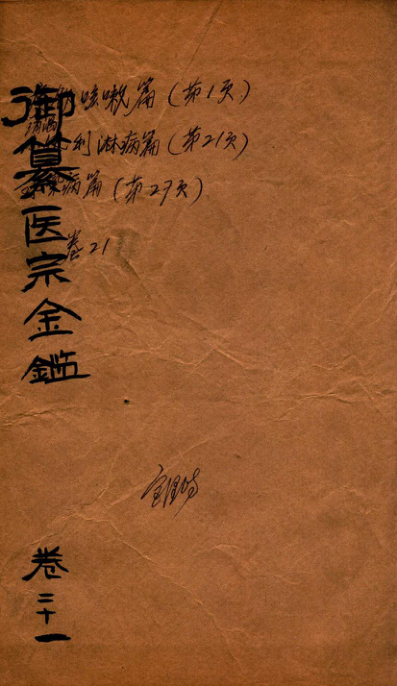 御纂医宗金鑑
卷二十一
咳嗽篇(第1页)
小利淋病篇(第21页)
病篇(第29页)
卷21